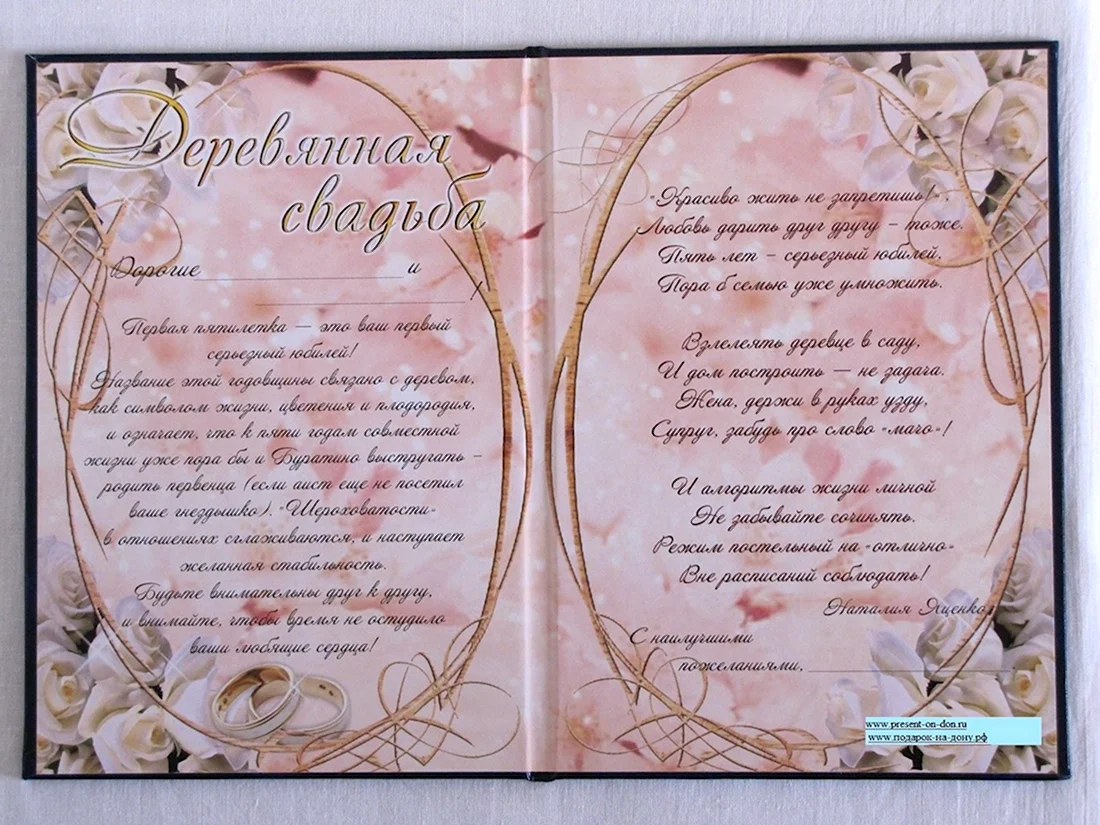 Деревянная
свадьба
Дорогие ____________ и
____________ !
Первая пятилетка — это ваш первый
серьезный юбилей!
Название этой годовщины связано с деревом,
как символом жизни, цветения и плодородия,
и означает, что к пяти годам совместной
жизни уже пора бы и Буратино выстругать –
родить первенца (если аист еще не посетил
ваше гнездышко). "Шероховатости"
в отношениях сглаживаются, и наступает
желанная стабильность.
Будьте внимательны друг к другу,
и внимайте, чтобы время не остудило
ваши любящие сердца!
"Красиво жить не запретишь!",
Любовь дарить друг другу – тоже.
Пять лет – серьезный юбилей,
Пора б семью уже умножить.
Взлелеять деревце в саду,
И дом построить — не задача.
Жена, держи в руках узду,
Супруг, забудь про слово "мачо"!
И алгоритмы жизни личной
Не забывайте сочинять.
Режим постельный на "отлично"
Вне расписаний соблюдать!
Наталия Яценко
С наилучшими
пожеланиями, ____________
www.present-on-don.ru
www.подарок-на-дону.рф